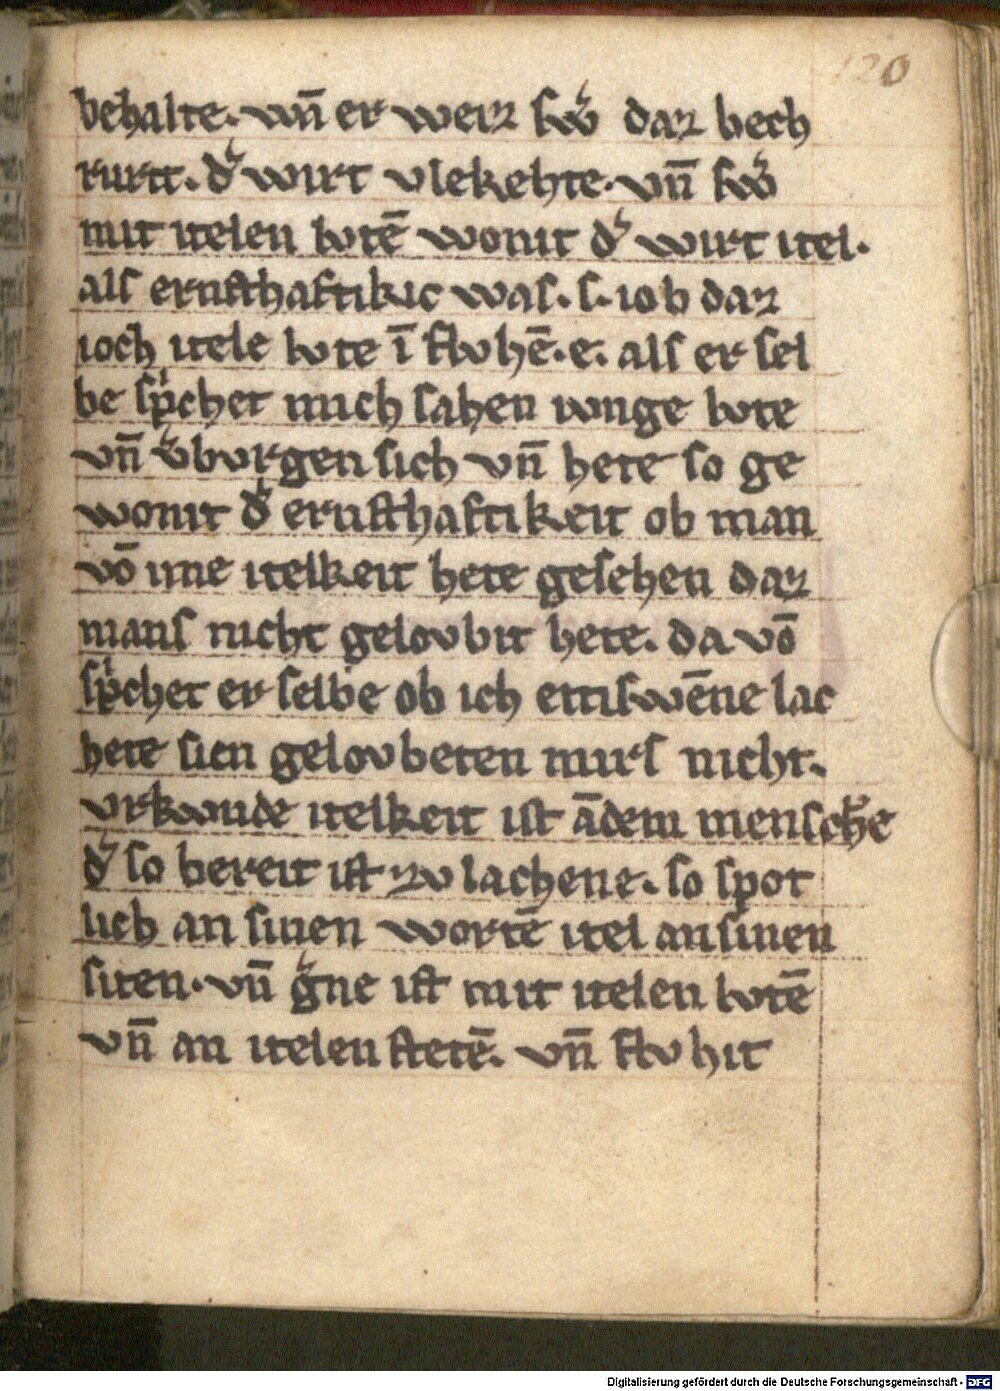 120
behalte. wn̄ er weiz swͤ daz bech
rurtt. dͤ wirt vlekehte. vn̄ swͤ
mit itelen lvtē wonit dͤ wirt itel.
als ernsthaftikic was. s. iob daz
ioch itele lvte ī flvhē. e. als er sel
be sp̄chet mich sahen ivnge lvte
vn̄ vͤburgen sich vn̄ hete so ge
wonit dͤ ernsthaftikeit ob man
vō ime itelkeit hete gesehen daz
mans nicht gelovbit hete. da vō
sp̄chet er selbe ob ich ettiswēne lac
hete sien gelovbeten mirs nicht.
vrkvnde itelkeit ist ādem menschͤe
dͤ so bereit ist zv lachene. so spot
lich an sinen wortē itel an sinen
siten. vn̄ gͤne ist mit itelen lvtē
vn̄ an itelen stetē. vn̄ flvhit
Digitalisierung gefördert durch die Deutsche Forschungsgemeinschaft - DFG